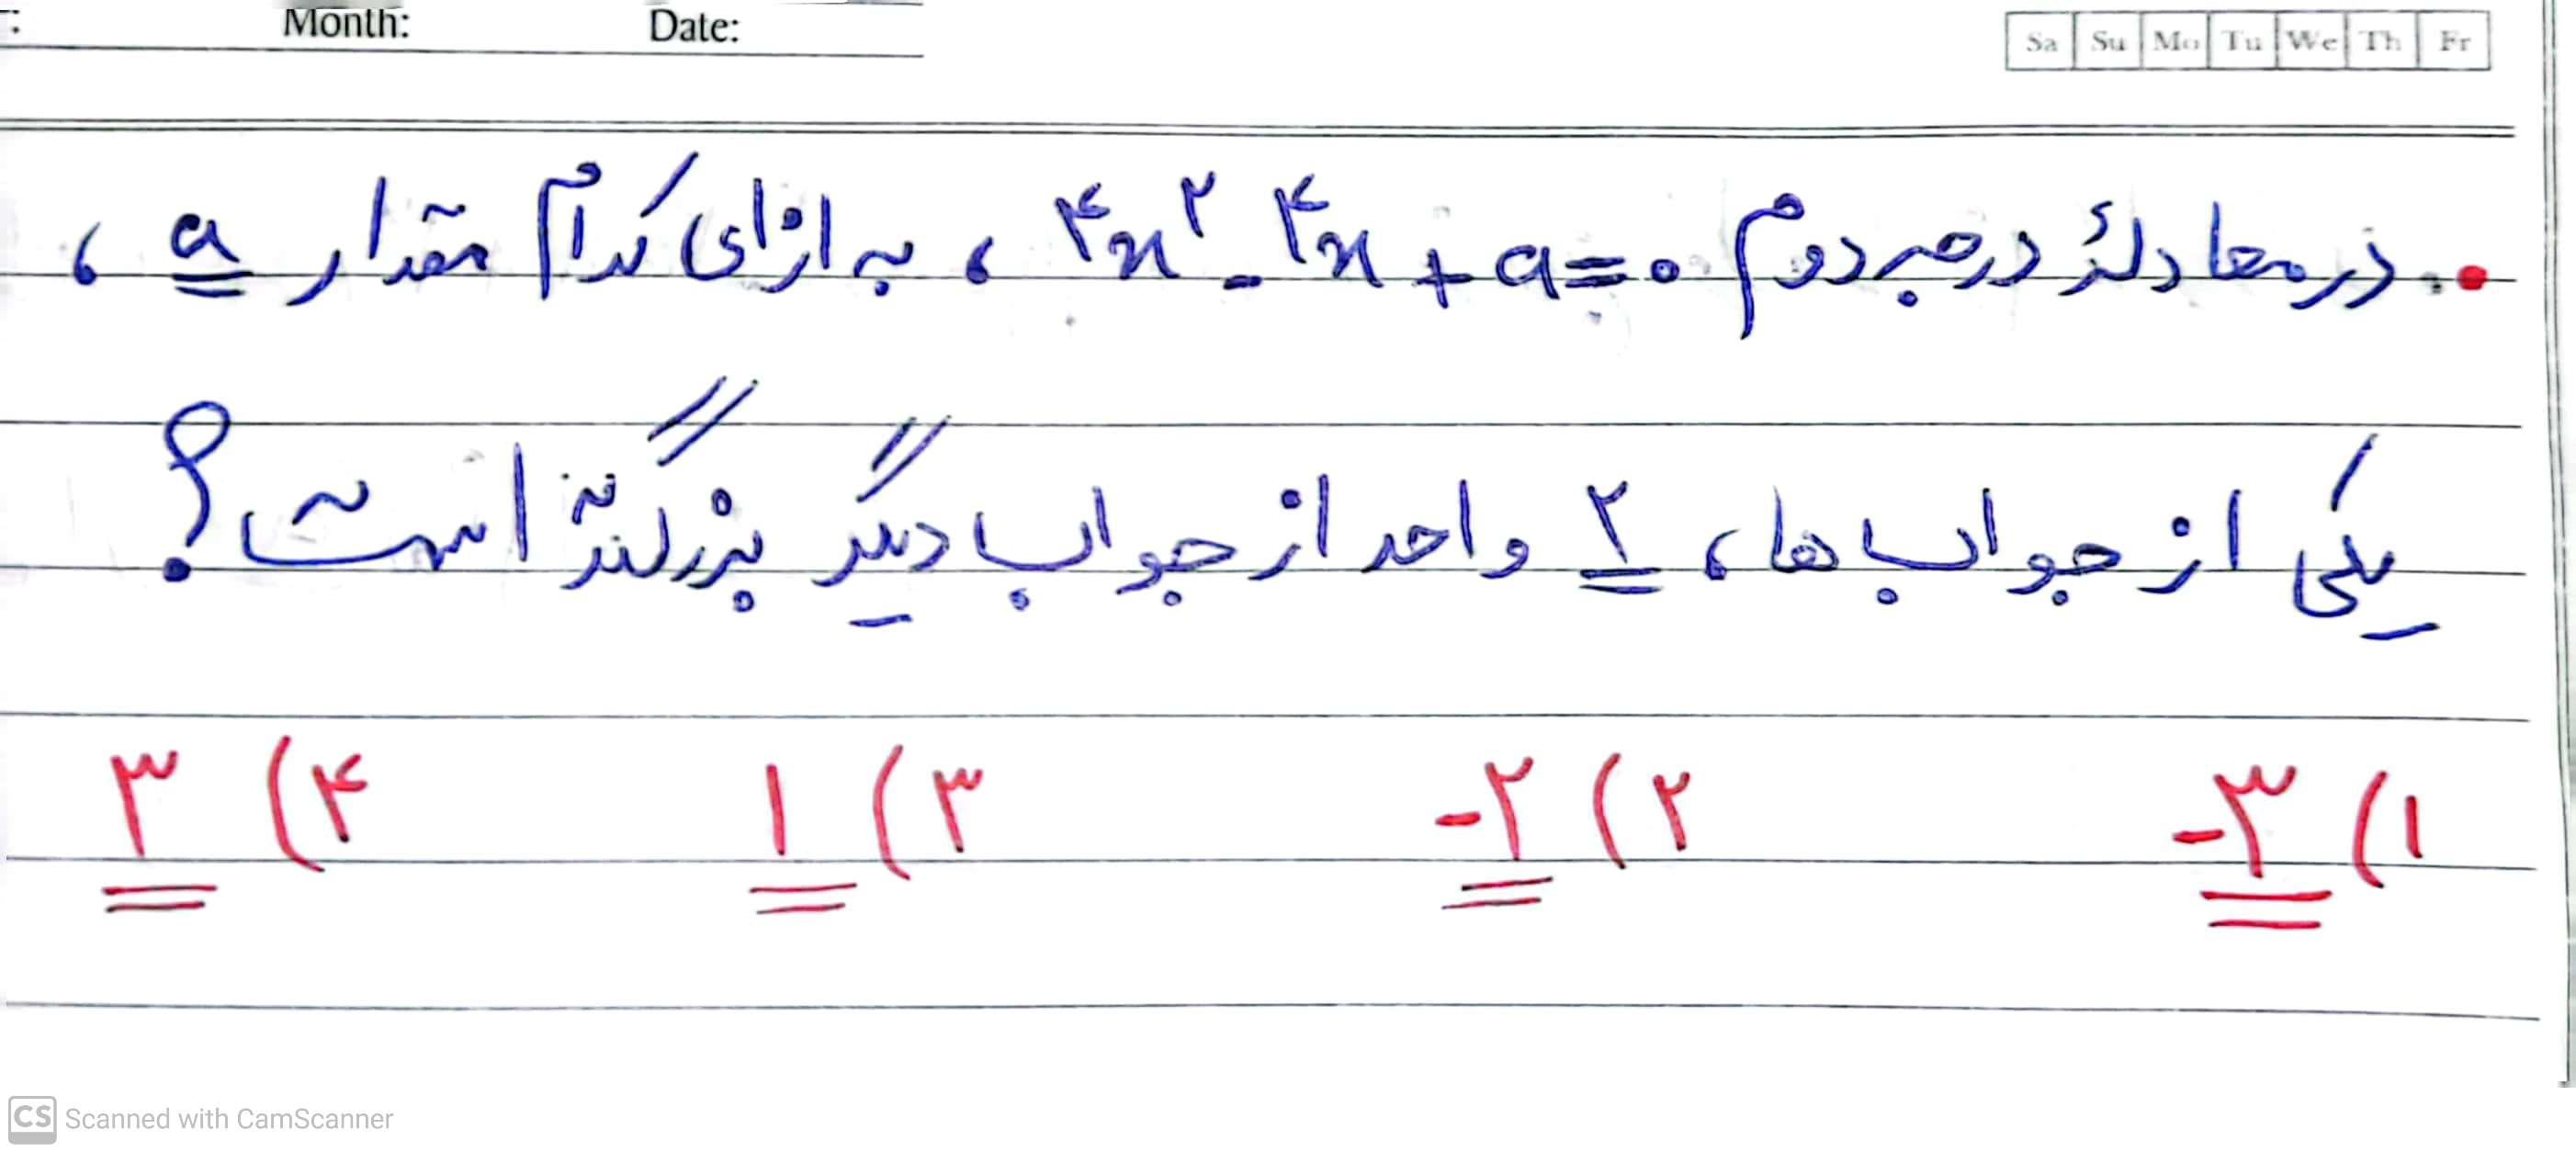 : Month: Date: Sa Su Mo Tu We Th Fr
در معادلهٔ درجه دوم ۴x² - ۴x + a = ۰ ، به ازای کدام مقدار a ،
یکی از جواب ها، ۲ واحد از جواب دیگر بزرگتر است؟
۱) -۳ ۲) -۲ ۳) ۱ ۴) ۳
CS Scanned with CamScanner